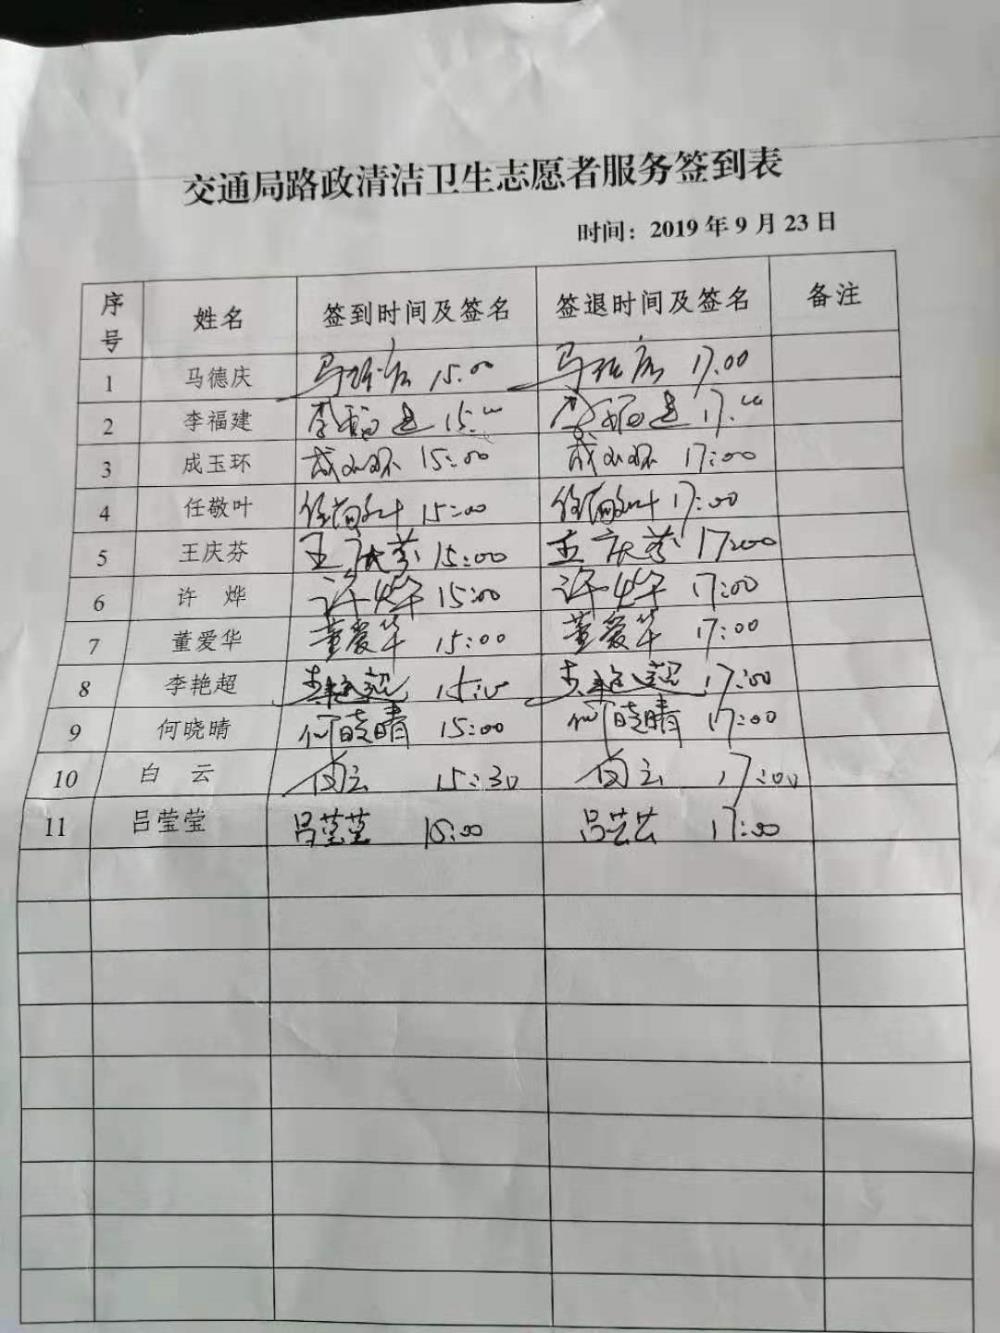 交通局路政清洁卫生志愿者服务签到表
时间：2019年9月23日
序号 姓名 签到时间及签名 签退时间及签名 备注
1 马德庆 马德庆 15:00 马德庆 17:00
2 李福建 李福建 15:00 李福建 17:00
3 成玉环 成玉环 15:00 成玉环 17:00
4 任敬叶 任敬叶 15:00 任敬叶 17:00
5 王庆芬 王庆芬 15:00 王庆芬 17:00
6 许 烨 许烨 15:00 许烨 17:00
7 董爱华 董爱华 15:00 董爱华 17:00
8 李艳超 李艳超 李艳超 17:00
9 何晓晴 何晓晴 15:00 何晓晴 17:00
10 白 云 白云 15:30 白云 17:00
11 吕莹莹 吕莹莹 15:00 吕莹莹 17:00